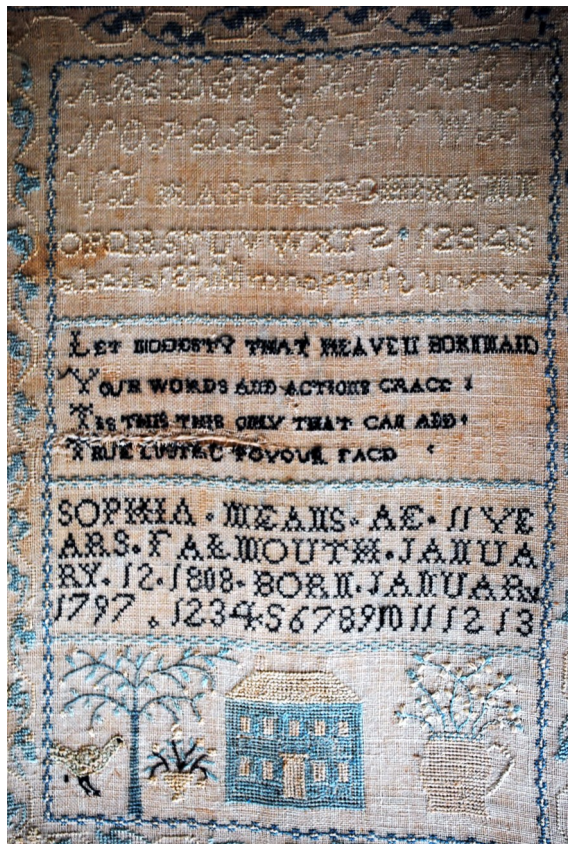 A B C D E F G H I J K L M
N O P Q R S T U V W X
Y Z A B C D E F G H I K L M N
O P Q R S T U V W X Y Z 1 2 3 4 5
LET MODESTY THAT HEAVEN BORN MAID
YOUR WORDS AND ACTIONS GRACE
TIS THIS THIS ONLY THAT CAN ADD
TRUE LUSTRE TO YOUR FACE
SOPHIA . MEANS . AE . 11 YE
ARS . FALMOUTH . JANUA
RY . 12 . 1808 . BORN . JANUARY
1797 . 1 2 3 4 5 6 7 8 9 10 11 12 13